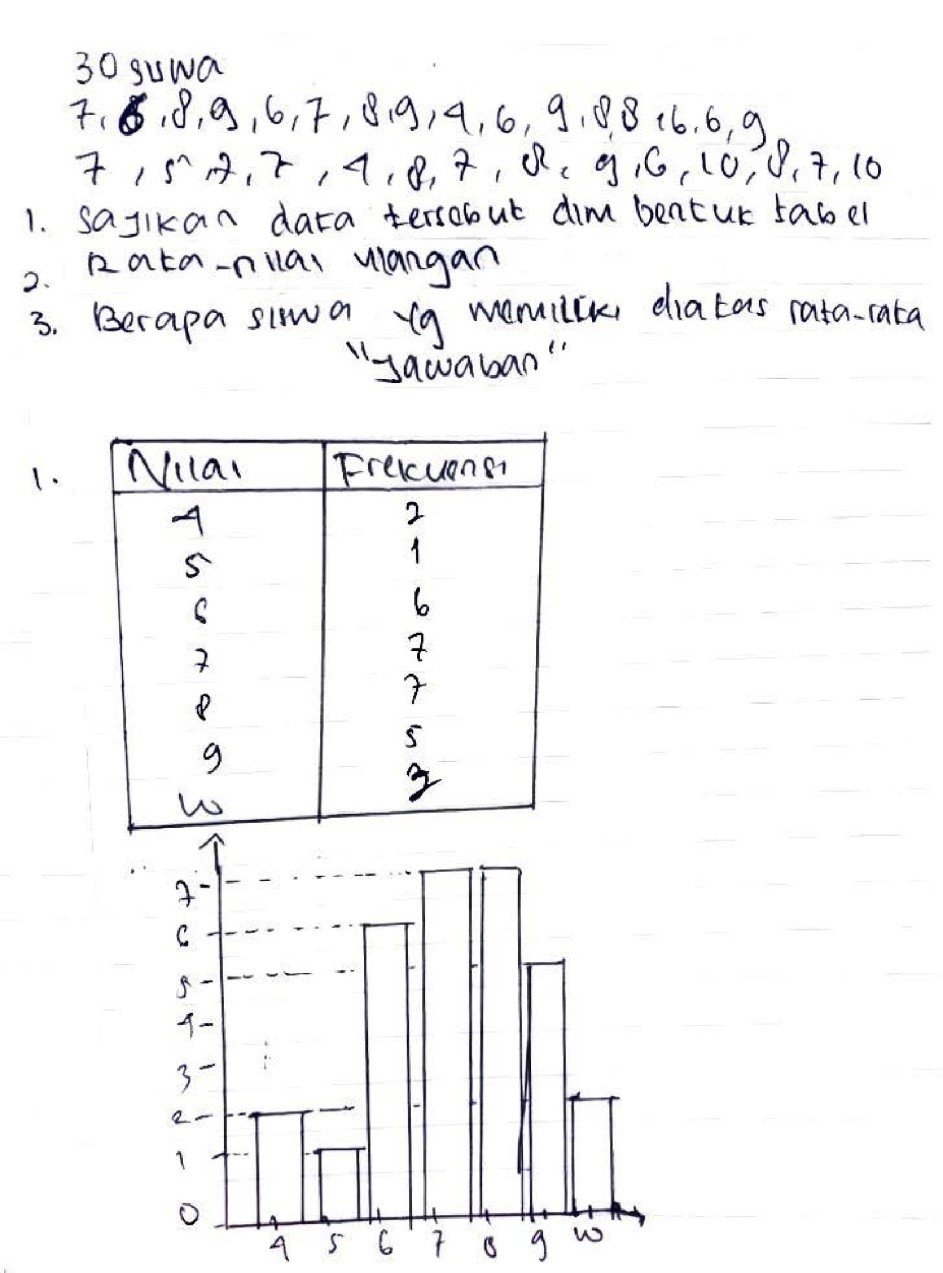 30 siswa
7, 6, 8, 9, 6, 7, 8, 9, 4, 6, 9, 8, 8, 6, 6, 9
7, 5, 7, 7, 4, 8, 7, 8, 9, 6, 10, 8, 7, 10
1. Sajikan data tersebut dlm bentuk tabel
2. Rata-nilai ulangan
3. Berapa siswa yg memiliki diatas rata-rata
"Jawaban"
1. Nilai Frekuensi
4 2
5 1
6 6
7 7
8 7
9 5
10
7
6
5
4
3
2
1
0
4 5 6 7 8 9 10